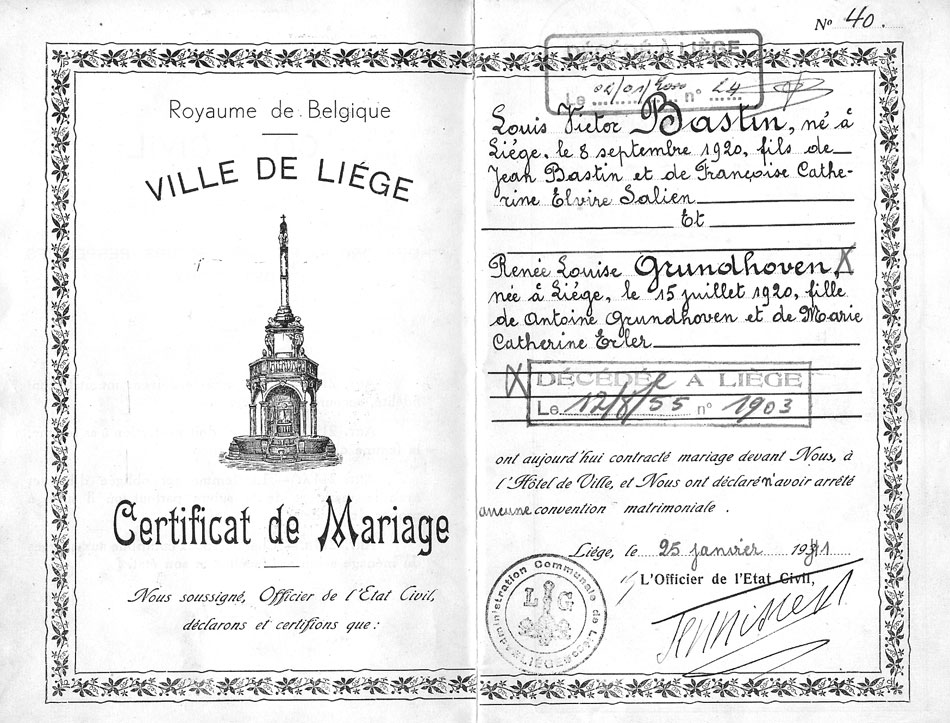 Royaume de Belgique
VILLE DE LIÉGE
Certificat de Mariage
Nous soussigné, Officier de l'Etat Civil,
déclarons et certifions que :
Nº 40.
DÉCÉDÉ À LIÈGE
Le 02/01/2000 n° 24
Louis Victor Bastin, né à
Liége, le 8 septembre 1920, fils de
Jean Bastin et de Françoise Cathe-
rine Elvire Salien
Et
Renée Louise Grundhoven, X
née à Liége, le 15 juillet 1920, fille
de Antoine Grundhoven et de Marie
Catherine Erler
X DÉCÉDÉe A LIÈGE
Le 12/8/55 n° 1903
ont aujourd'hui contracté mariage devant Nous, à
l'Hôtel de Ville, et Nous ont déclaré n'avoir arrêté
aucune convention matrimoniale .
Liége, le 25 janvier 1941
L'Officier de l'Etat Civil,
Administration Communale de Liége
L G
LIÉGE